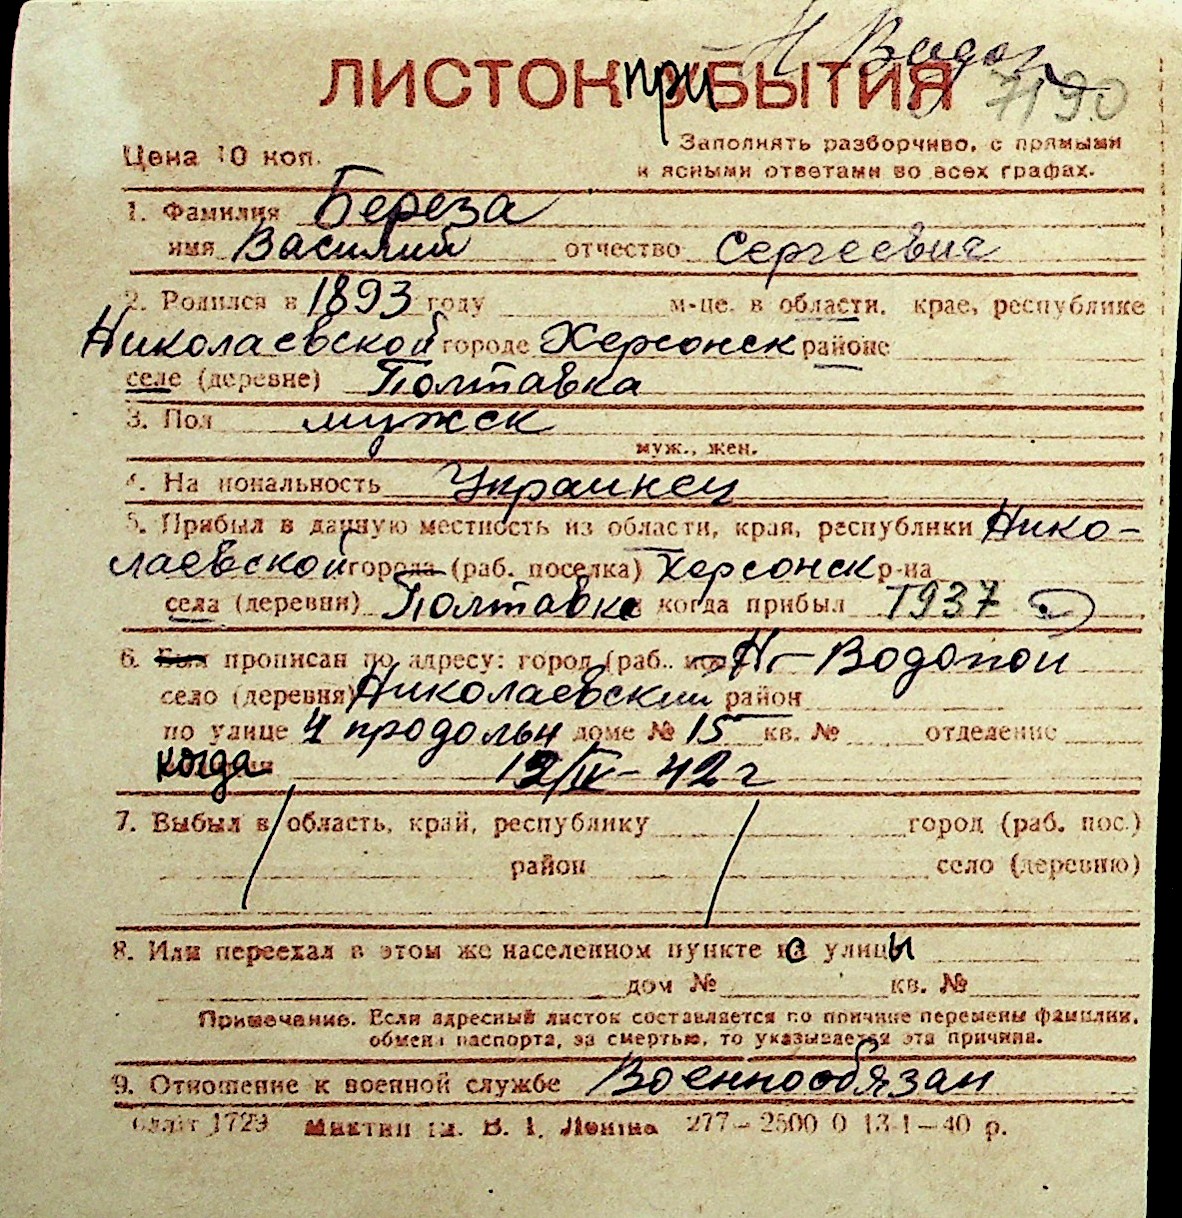 Н Водоп
ЛИСТОК при УБЫТИЯ 7190
Цена 10 коп. Заполнять разборчиво, с прямыми
и ясными ответами во всех графах.
1. Фамилия Береза
имя Василий отчество Сергеевич
2. Родился в 1893 году м-це. в области. крае, республике
Николаевской городе Херсонск районе
селе (деревне) Полтавка
3. Пол мужск
муж., жен.
4. Национальность Украинец
5. Прибыл в данную местность из области, края, республики Нико-
лаевской города (раб. поселка) Херсонск р-на
села (деревни) Полтавка когда прибыл 1937
6. Был прописан по адресу: город (раб. Н-Водопой
село (деревня) Николаевский район
по улице 4 продольн доме № 15 кв. № отделение
когда 12/IV-42 г
7. Выбыл в область, край, республику город (раб. пос.)
район село (деревню)
8. Или переехал в этом же населенном пункте с улицы
дом № кв. №
Примечание. Если адресный листок составляется по причине перемены фамилии,
обмена паспорта, за смертью, то указывается эта причина.
9. Отношение к военной службе Военнообязан
1729 В. І. Леніна 277-2500 0 13-1-40 р.